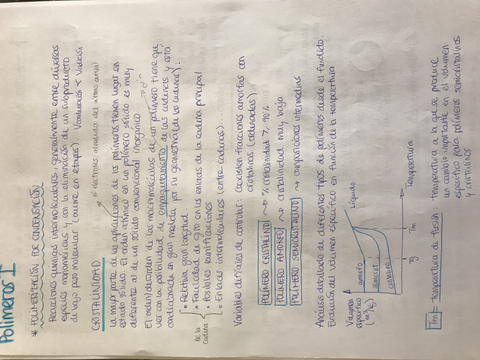 Polímeros I
* POLIMERIZACIÓN POR CONDENSACIÓN
Reacciones químicas intermoleculares, generalmente entre diversas
especies monoméricas y con la eliminación de un subproducto
de bajo peso molecular (ocurre en etapas)
CRISTALINIDAD
La mayoría de las aplicaciones de los polímeros tienen lugar en
estado sólido. El orden atómico en un polímero sólido es muy
diferente al de un sólido convencional (inorgánico)
El orden/desorden de las macromoléculas de un polímero tiene que
ver con la posibilidad de empaquetamiento de las cadenas y está
condicionada en gran medida por su geometría
De la cadena
• Relativa gran longitud
• Facilidad de giro en los enlaces de la cadena principal
• Posibles ramificaciones
• Enlaces intermoleculares (entre cadenas)...
Variables difíciles de controlar: Coexisten fracciones amorfas con
cristalinas (ordenadas)
POLÍMERO CRISTALINO → % cristalinidad > 90%
POLÍMERO AMORFO → cristalinidad muy baja
POLÍMERO SEMICRISTALINO → comportamientos intermedios
Análisis detallado de diferentes tipos de polímeros desde el fundido.
Evolución del volumen específico en función de la temperatura
Volumen
específico
Líquido
amorfo
semicrist
cristalino
Tg
Tm
Temperatura
Tm = Temperatura de fusión
temperatura a la que se produce
un cambio importante en el volumen
específico para polímeros semicristalinos
y cristalinos